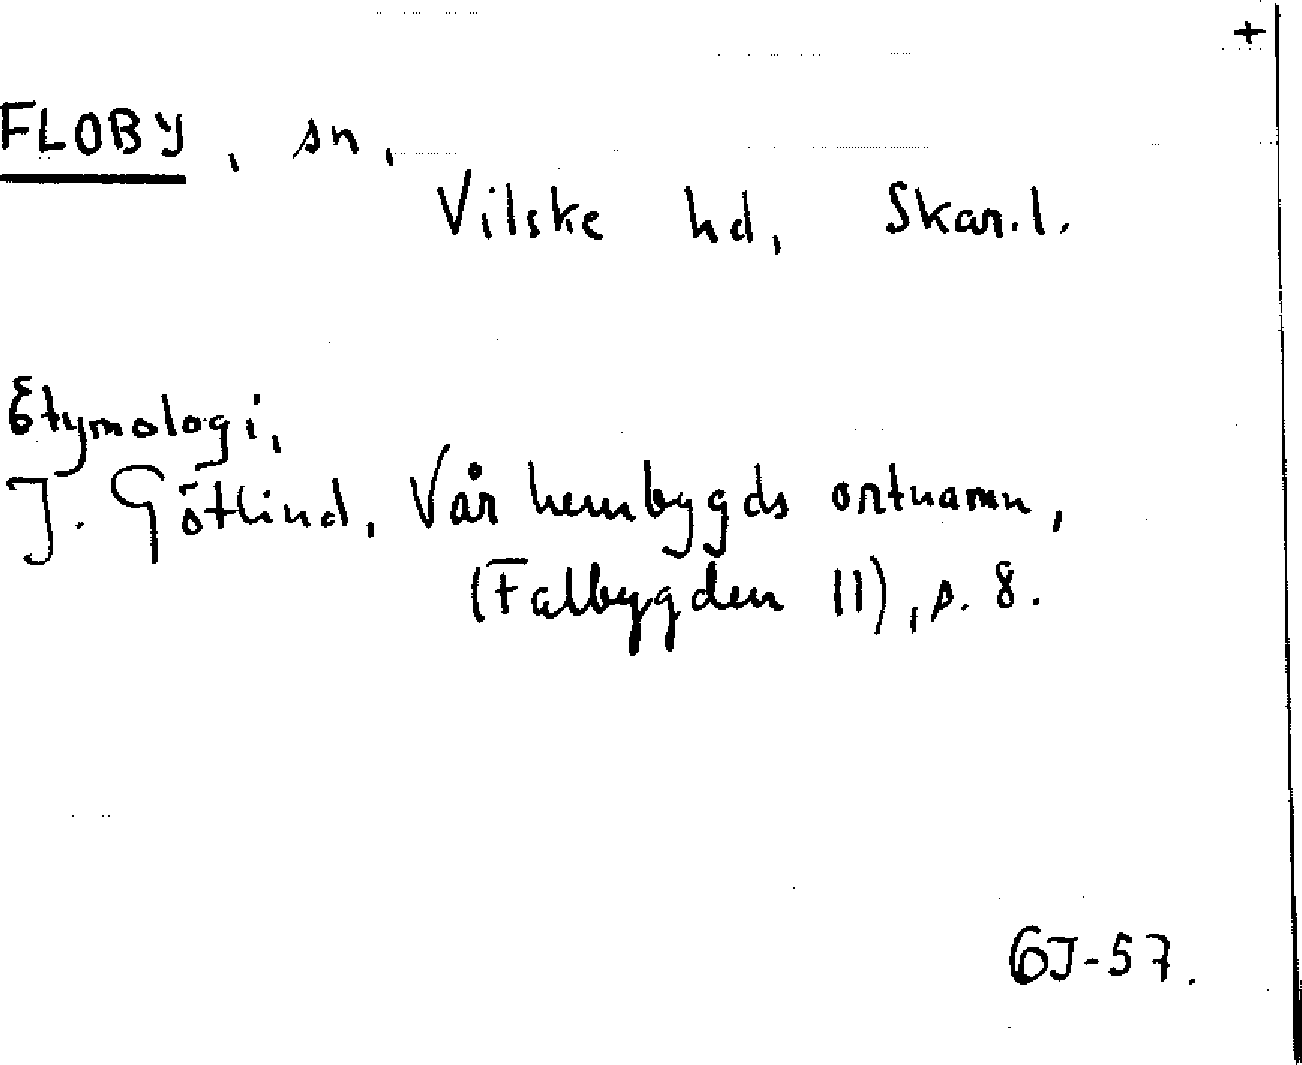 +
FLOBY, sn,
Vilske hd, Skar.l.
Etymologi,
J. Götlind, Vår hembygds ortnamn,
(Falbygden 11), s. 8.
GJ-57.